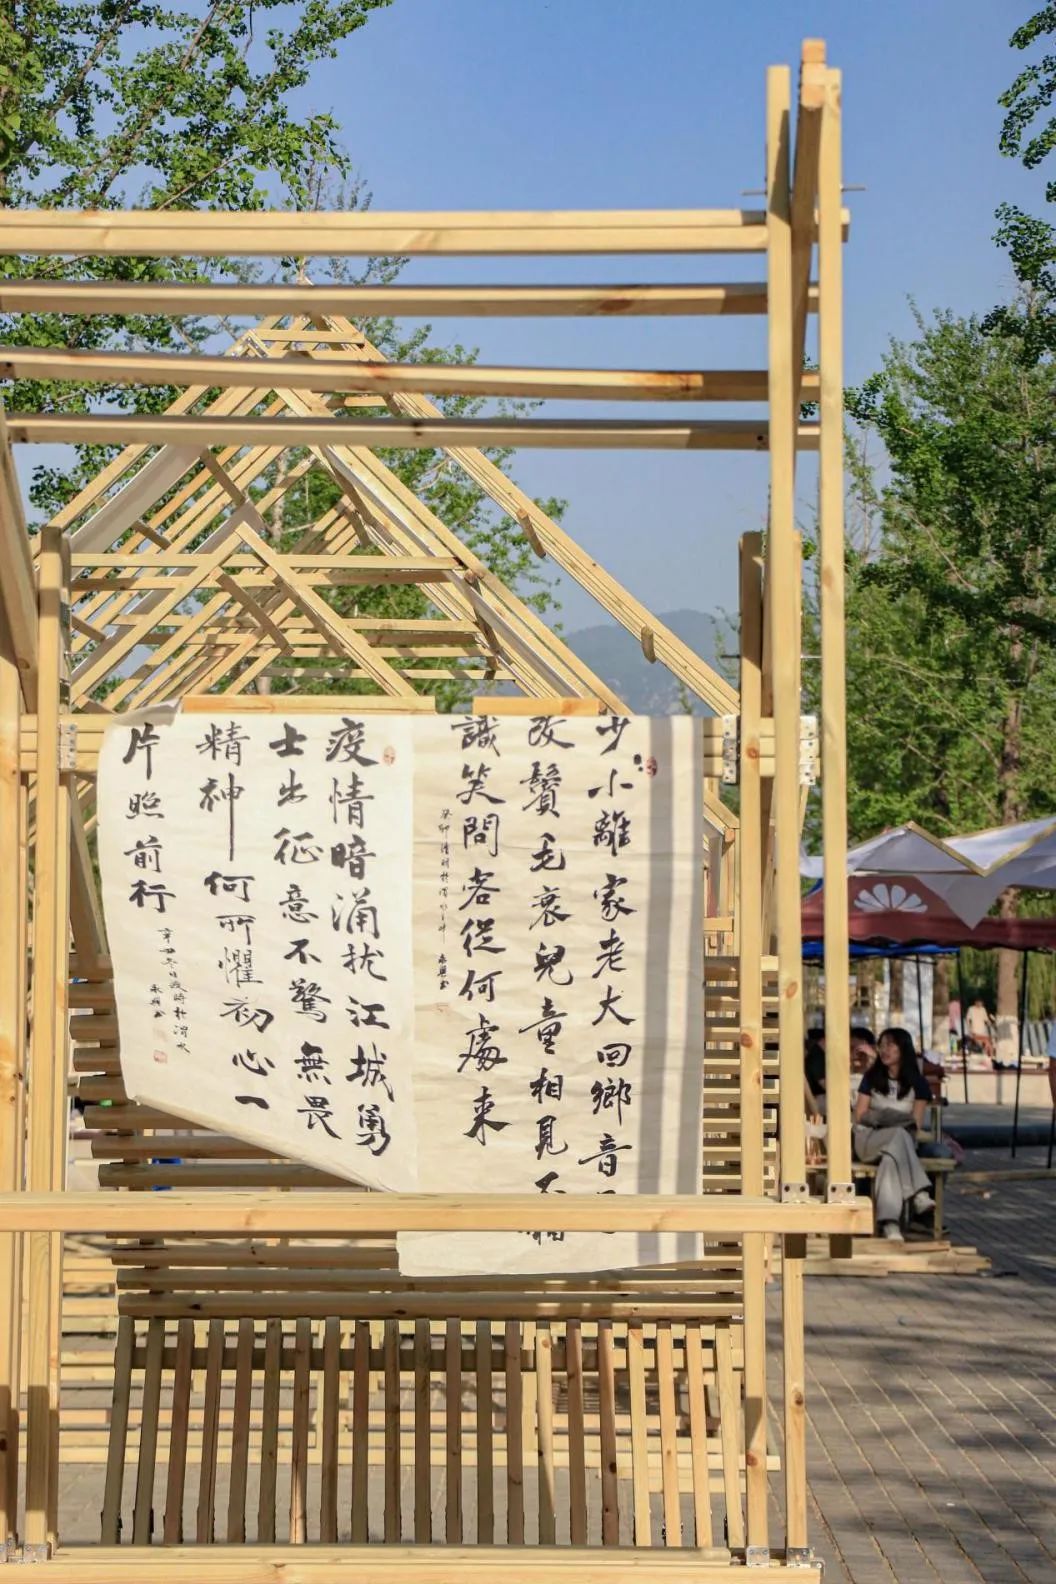 少小離家老大回鄉音
改鬢毛衰兒童相見不相
識笑問客從何處來
疫情暗涌扰江城勇
士出征意不驚無畏
精神何所懼初心一
片照前行